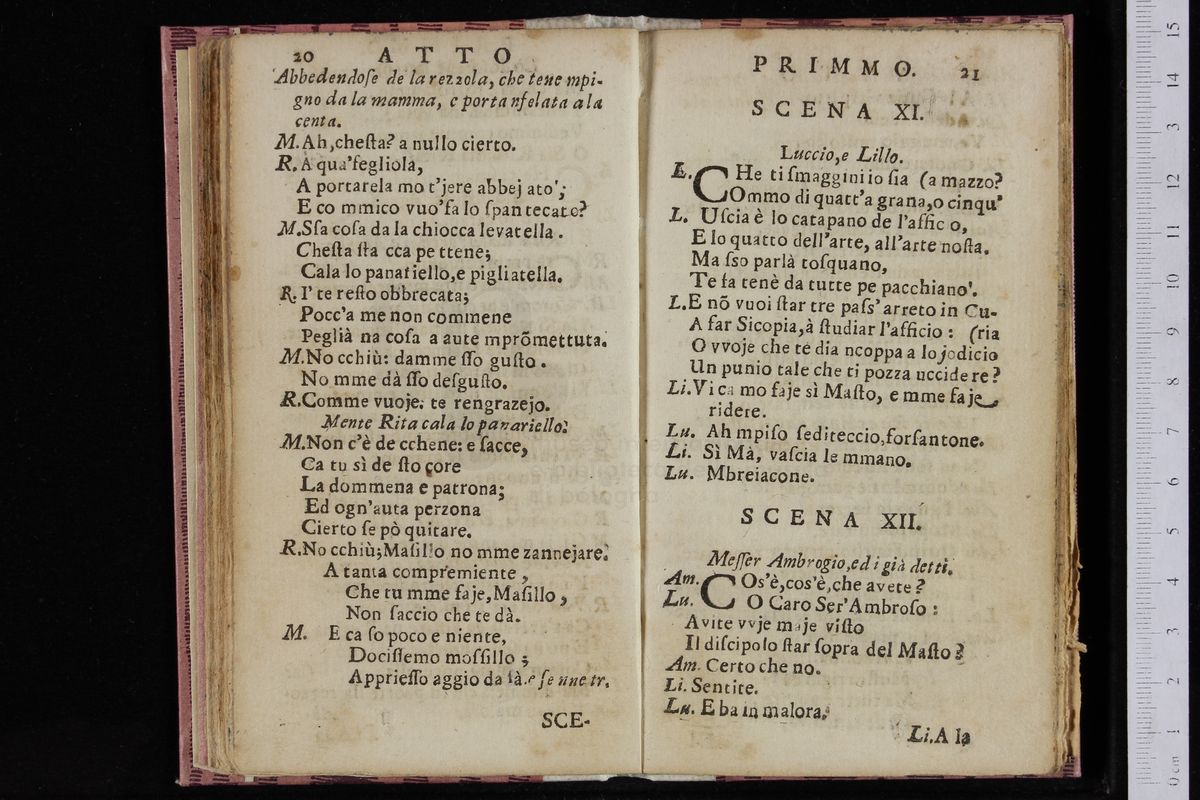 20 ATTO
Abbedendoſe de la rezzola, che tene mpi-
gno da la mamma, e porta nfelata a la
centa.
M. Ah, cheſta? a nullo cierto.
R. A qua' fegliola,
A portarela mo t'jere abbejato';
E co mmico vuo' fa lo ſpantecato?
M. Sſa coſa da la chiocca levatella.
Cheſta ſta cca pe ttene;
Cala lo panariello, e pigliatella.
R. I' te reſto obbrecata;
Pocc'a me non commene
Peglià na coſa a aute mprõmettuta.
M. No cchiù: damme ſſo guſto.
No mme dà ſſo deſguſto.
R. Comme vuoje: te rengrazejo.
Mente Rita cala lo panariello:
M. Non c'è de cchene: e ſacce,
Ca tu sì de ſto core
La dommena e patrona;
Ed ogn'auta perzona
Cierto ſe pò quitare.
R. No cchiù; Maſillo no mme zannejare.
A tanta compremiente,
Che tu mme faje, Maſillo,
Non ſaccio che te dà.
M. E ca ſo poco e niente,
Dociſſemo moſſillo;
Apprieſſo aggio da ſà. e ſe nne tr.
SCE-
PRIMMO. 21
SCENA XI.
Luccio, e Lillo.
L. CHe ti ſmaggini io ſia (a mazzo?
COmmo di quatt'a grana, o cinqu'
L. Uſcia è lo catapano de l'afficio,
E lo quatto dell'arte, all'arte noſta.
Ma ſso parlà toſquano,
Te fa tenè da tutte pe pacchiano'.
L. E nõ vuoi ſtar tre paſs' arreto in Cu-
A far Sicopia, à ſtudiar l'afficio: (ria
O vvoje che te dia ncoppa a lo jodicio
Un punio tale che ti pozza uccidere?
Li. Vi ca mo faje sì Maſto, e mme faje
ridere.
Lu. Ah mpiſo ſediteccio, forfantone.
Li. Sì Mà, vaſcia le mmano.
Lu. Mbreiacone.
SCENA XII.
Meſſer Ambrogio, ed i già detti.
Am. COs'è, cos'è, che avete?
Lu. O Caro Ser' Ambroſo:
Avite vvje maje viſto
Il diſcipolo ſtar ſopra del Maſto?
Am. Certo che no.
Li. Sentite.
Lu. E ba in malora.
Li. A la
15
14
13
12
11
10
9
8
7
6
5
4
3
2
1
0 cm